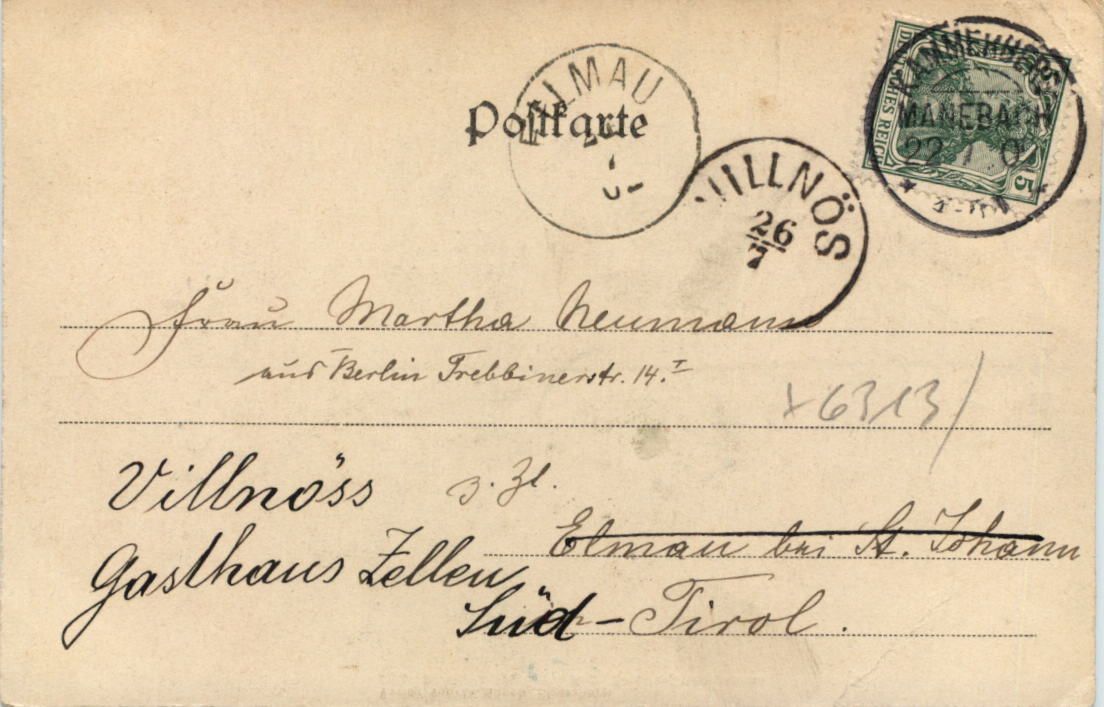 Postkarte
ELLMAU
VILLNÖS
26
7
DEUTSCHES REICH
5
KAMMERBERG
MANEBACH
22 7 0
Frau Martha Neumann
aus Berlin Trebbinerstr. 14. I
x6313/
Villnöss z. Zt.
Elmau bei St. Johann
Gasthaus Zellen,
Süd-Tirol.